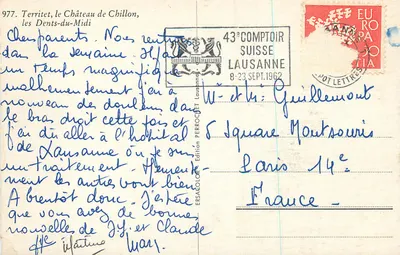 977. Territet, le Château de Chillon,
les Dents-du-Midi
Chers parents. Nous rentrons
dans la semaine. Il fait
un temps magnifique
malheureusement j'ai à
nouveau des douleurs dans
le bras droit cette fois et
j'ai dû aller à l'hôpital
de Lausanne où je suis
un traitement. Heureuse-
ment les autres vont bien.
A bientôt donc. J'espère
que vous avez de bonnes
nouvelles de JJ. et Claude
Martine
43e COMPTOIR
SUISSE
LAUSANNE
8-23 SEPT. 1962
EUROPA
HELVETIA
LAUSANNE
LETTRES
Edition PERROCHET Lausanne
M. et Mme Guillemont
5 Square Montsouris
Paris 14e
France